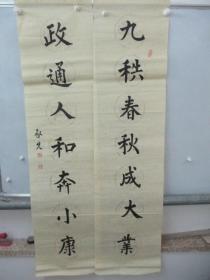 九秩春秋成大業
政通人和奔小康